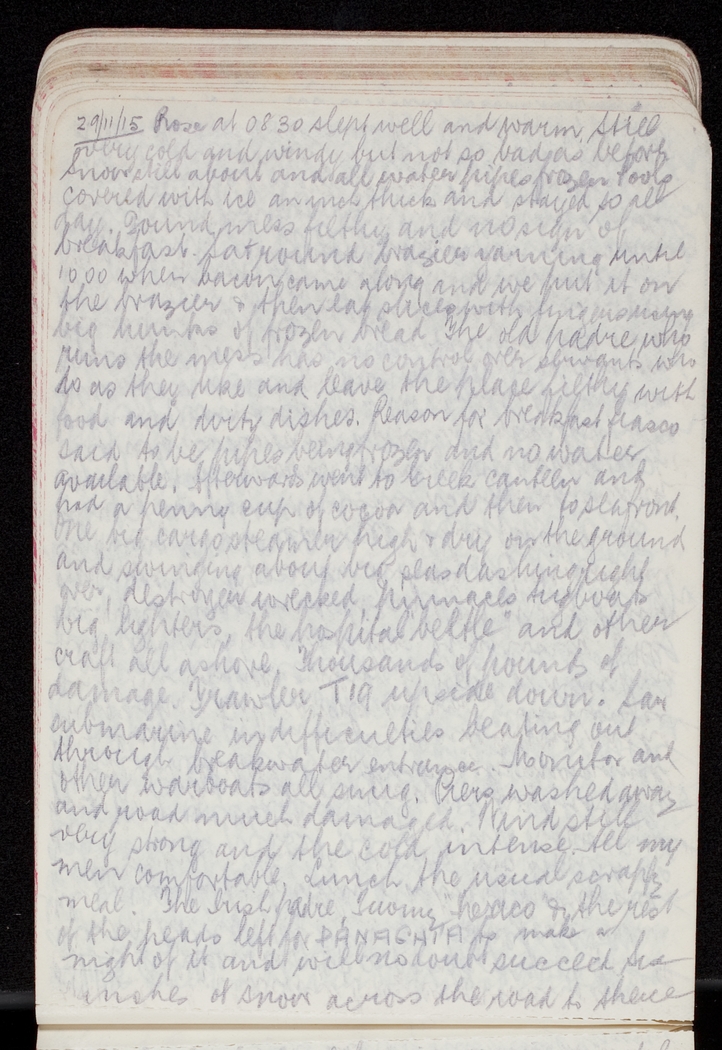 29/11/15 Rose at 0830 slept well and warm, still
very cold and windy but not so bad as before
snow still about and all water pipes frozen. Pools
covered with ice an inch thick and stayed so all
day. Found mess filthy and no sign of
breakfast. Sat round brazier yarning until
1000 when bacon came along and we put it on
the brazier & then eat slices with fingers using
big hunks of frozen bread. The old padre who
runs the mess has no control over servants who
do as they like and leave the place filthy with
food and dirty dishes. Reason for breakfast fiasco
said to be pipes being frozen and no water
available. Afterwards went to Greek canteen and
had a penny cup of cocoa and then to seafront.
One big cargo steamer high & dry on the ground
and swinging about big seas dashing right
over, destroyer wrecked, pinnaces tugboats
big lighters, the hospital and other
craft all ashore. Thousands of pounds of
damage. Trawler T19 upside down. Saw
submarine in difficulties beating out
through breakwater entrance. Monitor and
other warboats all snug. Piers washed away
and road much damaged. Wind still
very strong and the cold intense. All my
men comfortable. Lunch the usual scrappy
meal. The Irish padre, & the rest
of the heads left for PANAGHIA to make a
night of it and will no doubt succeed. Six
inches of snow across the road to there